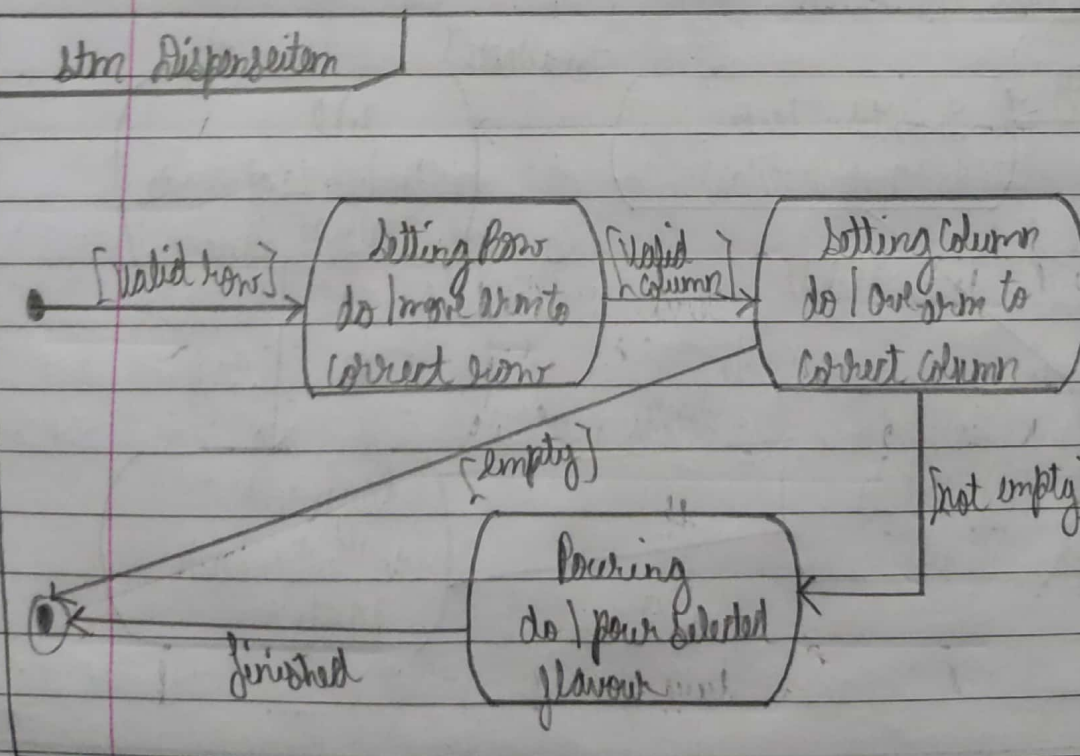 stm Dispenseitem
[valid row]
Setting Row
do / move arm to
correct row
[valid
column]
Setting Column
do / ove arm to
correct column
[empty]
[not empty
Pouring
do / pour selected
flavour
finished